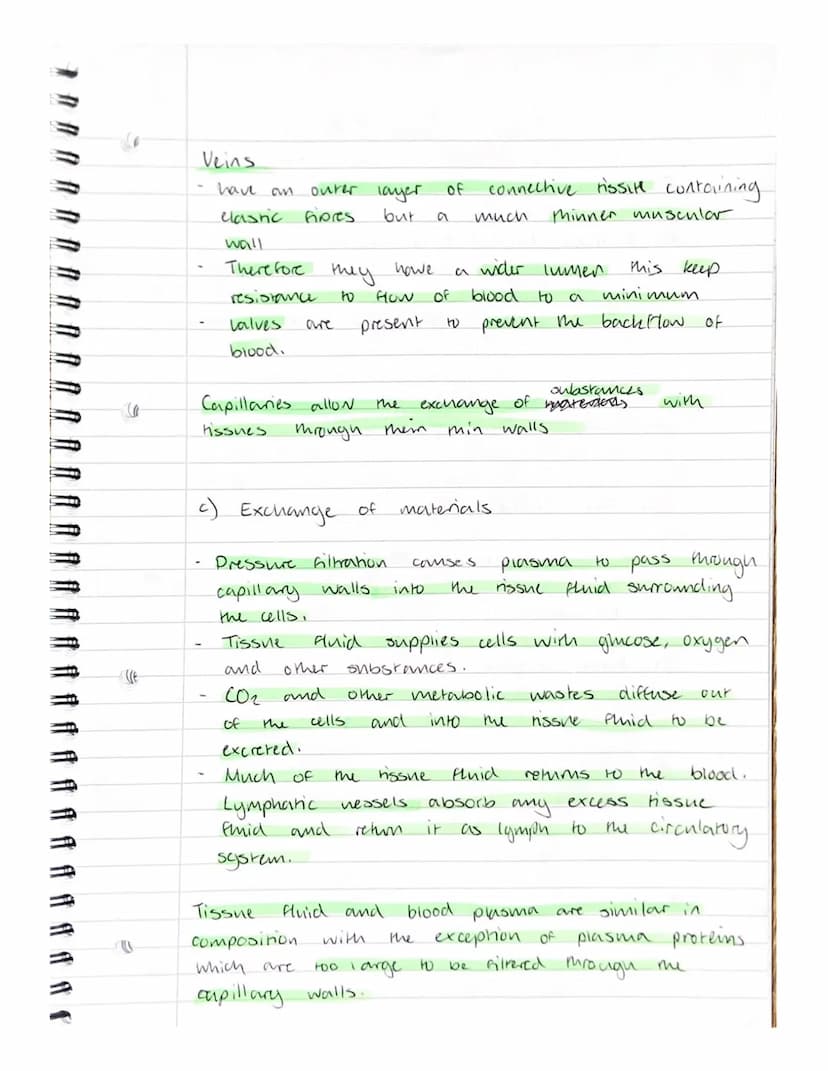 Veins
- have an outer layer of connective tissue containing
elastic fibres but a much thinner muscular
wall
- Therefore they have a wider lumen this keep
resistance to flow of blood to a minimum
- valves are present to prevent the backflow of
blood.
substances
Capillaries allow the exchange of materials with
tissues through their thin walls
c) Exchange of materials
- Pressure filtration causes plasma to pass through
capillary walls into the tissue fluid surrounding
the cells.
- Tissue fluid supplies cells with glucose, oxygen
and other substances.
- CO2 and other metabolic wastes diffuse out
of the cells and into the tissue fluid to be
excreted.
- Much of the tissue fluid returns to the blood.
Lymphatic vessels absorb any excess tissue
fluid and return it as lymph to the circulatory
system.
Tissue fluid and blood plasma are similar in
composition with the exception of plasma proteins
which are too large to be filtered through the
capillary walls.